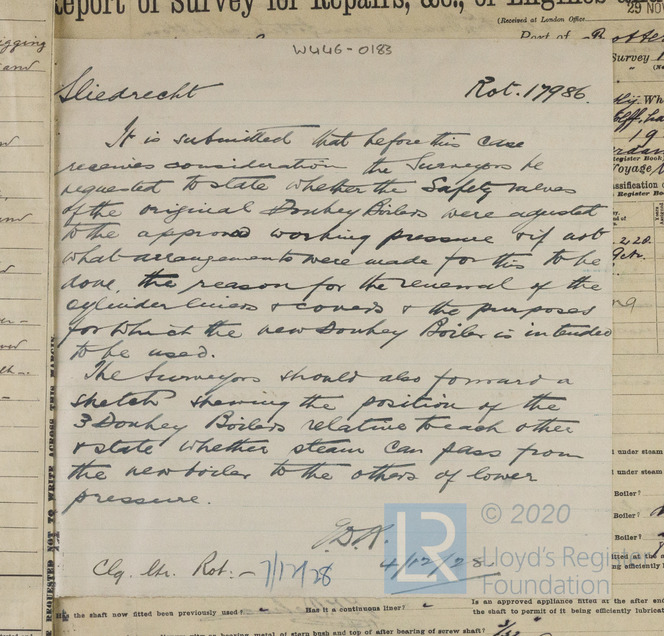 Report of Survey for Repairs, &c., of Engines
29 NOV
(Received at London Office
Port of
Survey
W446-0183
Sliedrecht Rot. 17986.
It is submitted that before this case
receives consideration the Surveyors be
requested to state whether the Safety valves
of the original Donkey Boilers were adjusted
to the approved working pressure & if not
what arrangements were made for this to be
done, the reason for the renewal of the
cylinder liners & covers & the purposes
for which the new Donkey Boiler is intended
to be used.
The Surveyors should also forward a
sketch shewing the position of the
3 Donkey Boilers relative to each other
& state whether steam can pass from
the new boiler to the others of lower
pressure.
4/12/28
Clg. Ltr. Rot. - 7/12/28
LR
© 2020
Lloyd's Register
Foundation
Register Book
Voyage
Register Bo
under steam
under steam
Boiler?
Boiler?
Boiler?
REQUESTED NOT TO WRITE ACROSS THIS MARGIN
Has the shaft now fitted been previously used? Has it a continuous liner?
Is an approved appliance fitted at the after end
of the shaft to permit of it being efficiently lubricat
metal of stern bush and top of after bearing of screw shaft?